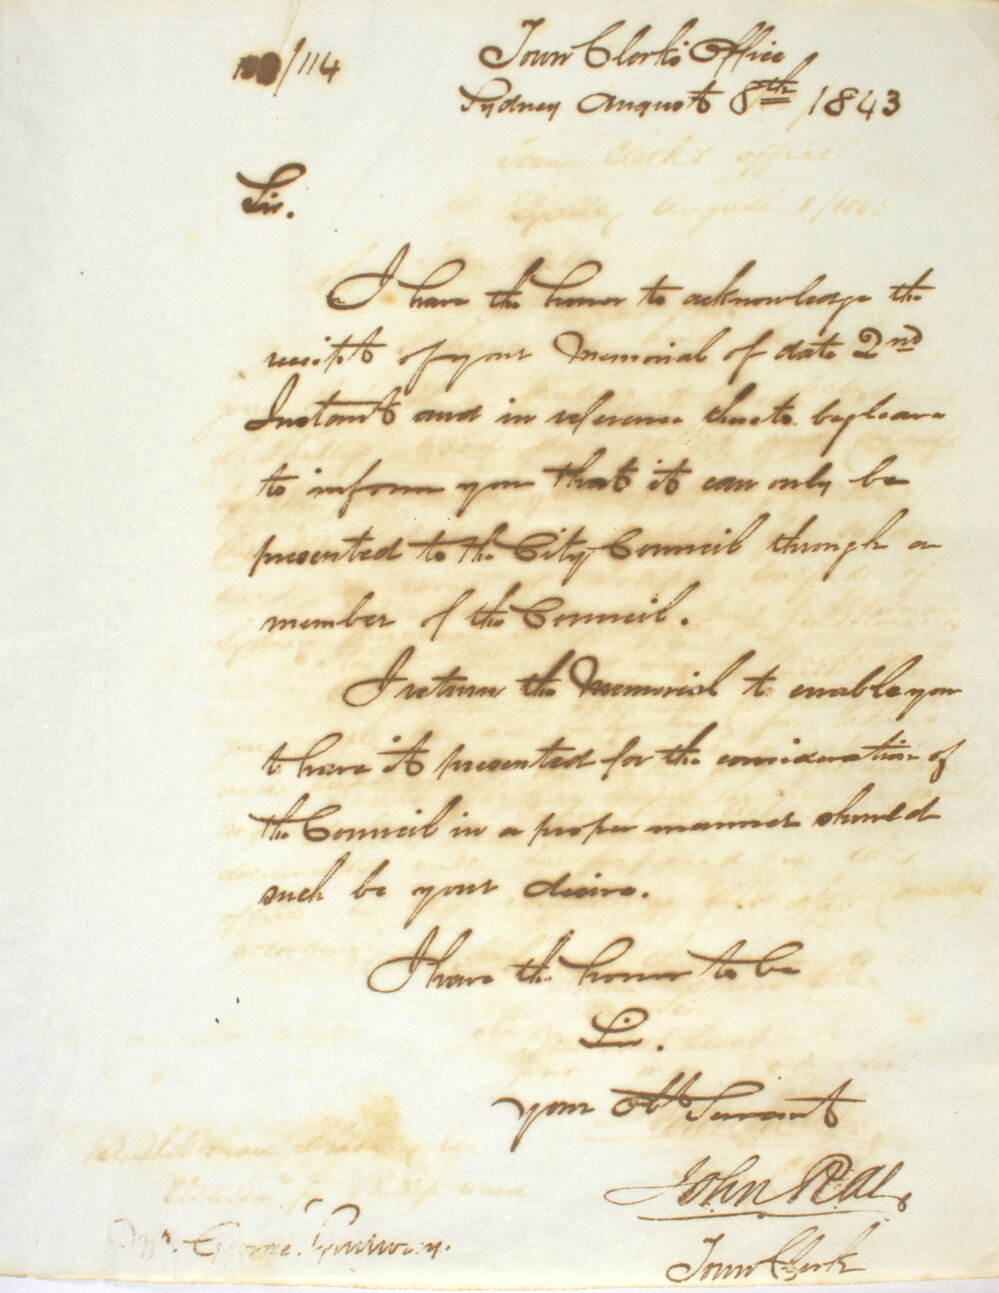 /114
Town Clerk's Office
Sydney August 8th 1843
Sir.
I have the honor to acknowledge the
receipt of your Memorial of date 2nd
Instant and in reference thereto beg leave
to inform you that it can only be
presented to the City Council through a
member of the Council.
I return the Memorial to enable you
to have it presented for the consideration of
the Council in a proper manner should
such be your desire.
I have the honor to be
Sir.
your Obt Servant
John Rae,
Town Clerk
Mr. George